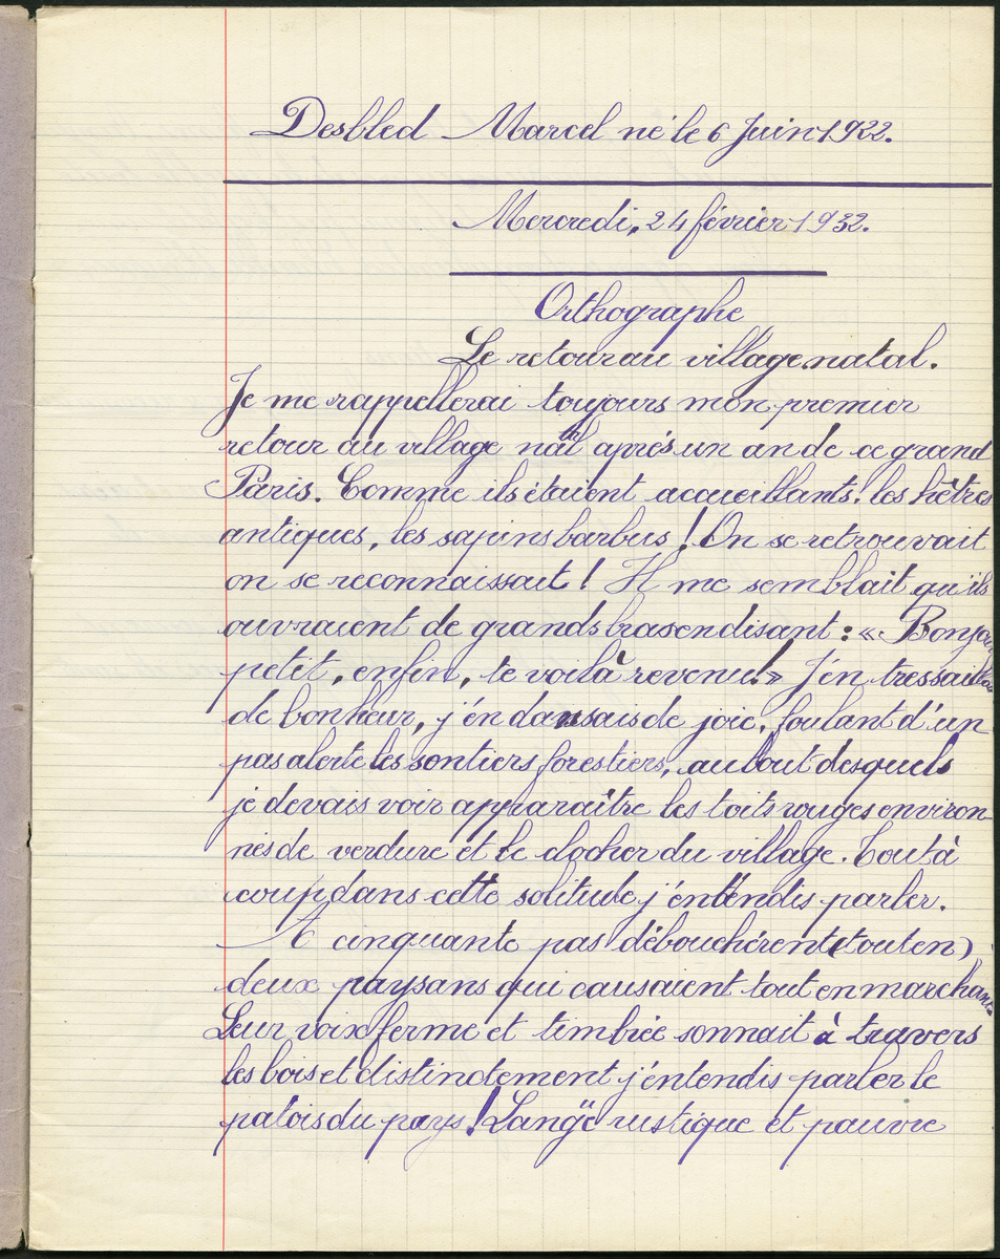 Desbled Marcel né le 6 Juin 1922.
Mercredi, 24 février 1932.
Orthographe
Le retour au village natal.
Je me rappellerai toujours mon premier
retour au village natal après un an de ce grand
Paris. Comme ils étaient accueillants! les hêtres
antiques, les sapins barbus ! On se retrouvait
on se reconnaissait ! Il me semblait qu'ils
ouvraient de grands bras en disant : « Bonjour
petit, enfin, te voilà revenu! » J'en tressaillais
de bonheur, j'en dansais de joie, foulant d'un
pas alerte les sentiers forestiers, au bout desquels
je devais voir apparaître les toits rouges environ
nés de verdure et le clocher du village. Tout à
coup dans cette solitude j'entendis parler.
A cinquante pas débouchèrent (tout en)
deux paysans qui causaient tout en marchant.
Leur voix ferme et timbrée sonnait à travers
les bois et distinctement j'entendis parler le
patois du pays ! Langue rustique et pauvre